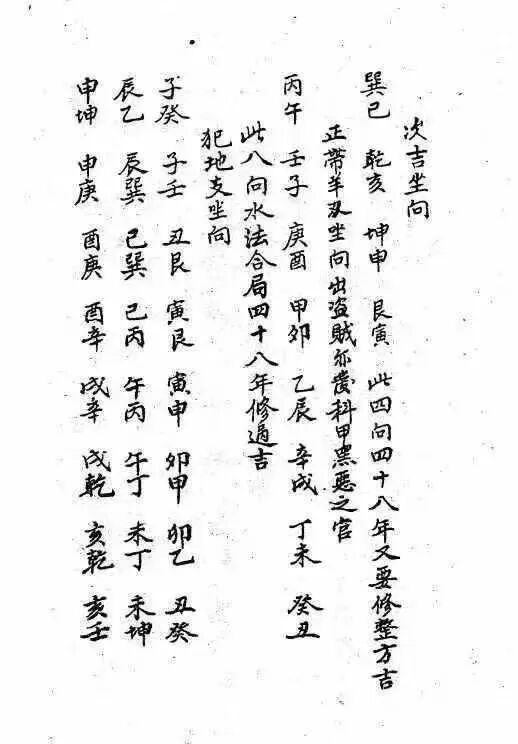 次吉坐向
巽巳 乾亥 坤申 艮寅 此四向四十八年又要修整方吉
正帶羊刃坐向出盗賊亦發科甲黑惡之官
丙午 壬子 庚酉 甲卯 乙辰 辛戌 丁未 癸丑
此八向水法合局四十八年修過吉
犯地支坐向
子癸 子壬 丑艮 寅艮 寅甲 卯甲 卯乙 丑癸
辰乙 辰巽 巳巽 巳丙 午丙 午丁 未丁 未坤
申坤 申庚 酉庚 酉辛 戌辛 戌乾 亥乾 亥壬